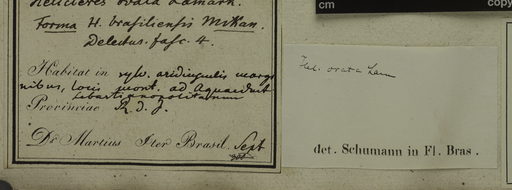 Helicteres ovata Lamark.
Forma H. brasiliensis Mikan.
Delectus. fasc. 4.
Habitat in sylv. aridiusculis margi
nibus, locis mont. ad Aquaeduct
Sebastianopolitanum
Provinciae R. d. J.
Dr Martius Iter Brasil. Sept
cm
copy
Hel. ovata Lam
det. Schumann in Fl. Bras.